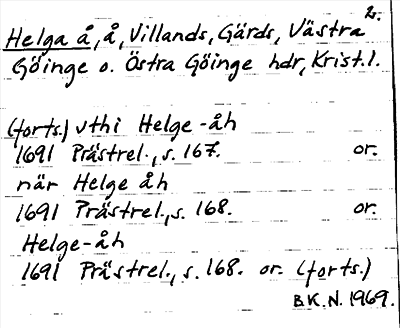 2.
Helga å, å, Villands, Gärds, Västra
Göinge o. Östra Göinge hdr, Krist. l.
(forts.) vthi Helge-åh
1691 Prästrel., s. 167. or.
när Helge åh
1691 Prästrel., s. 168. or.
Helge-åh
1691 Prästrel., s. 168. or. (forts.)
B.K.N. 1969.